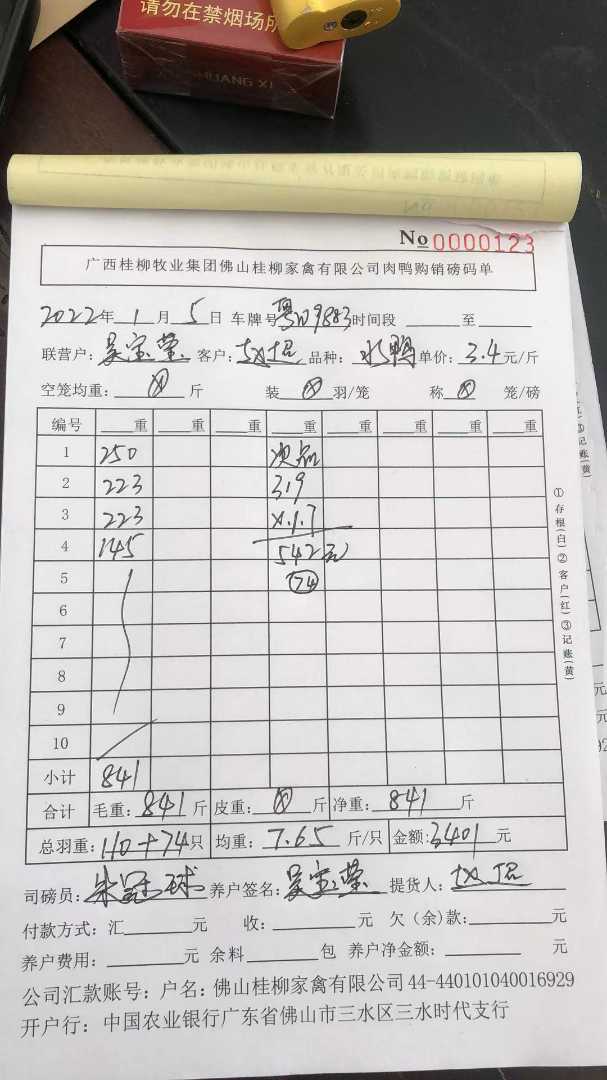 请勿在禁烟场所
SHUANG XI
No 0000123
广西桂柳牧业集团佛山桂柳家禽有限公司肉鸭购销磅码单
2022年 1 月 5 日 车牌号 9883 时间段 至
联营户: 吴宝莹 客户: 赵超 品种: 水鸭 单价: 3.4 元/斤
空笼均重: 斤 装 羽/笼 称 笼/磅
编号 重 重 重 重 重 重 重
1 250 次品
2 223 319
3 223 ×1.7
4 145 542元
5 74
6
7
8
9
10
小计 841
合计 毛重: 841 斤 皮重: 斤 净重: 841 斤
总羽重: 110+74只 均重: 7.65 斤/只 金额: 3401 元
司磅员: 朱冠球 养户签名: 吴宝莹 提货人: 赵超
付款方式: 汇 元 收: 元 欠(余)款: 元
养户费用: 元 余料 包 养户净金额: 元
公司汇款账号: 户名: 佛山桂柳家禽有限公司 44-440101040016929
开户行: 中国农业银行广东省佛山市三水区三水时代支行
①存根(白)②客户(红)③记账(黄)